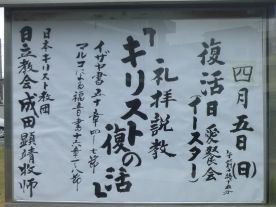 四月五日(日)
復活日愛餐会
(イースター)
礼拝説教
『キリストの復活』
イザヤ書五十章四〜七節
マルコによる福音書十六章一〜八節
日本キリスト教団
日立教会 成田顕靖牧師